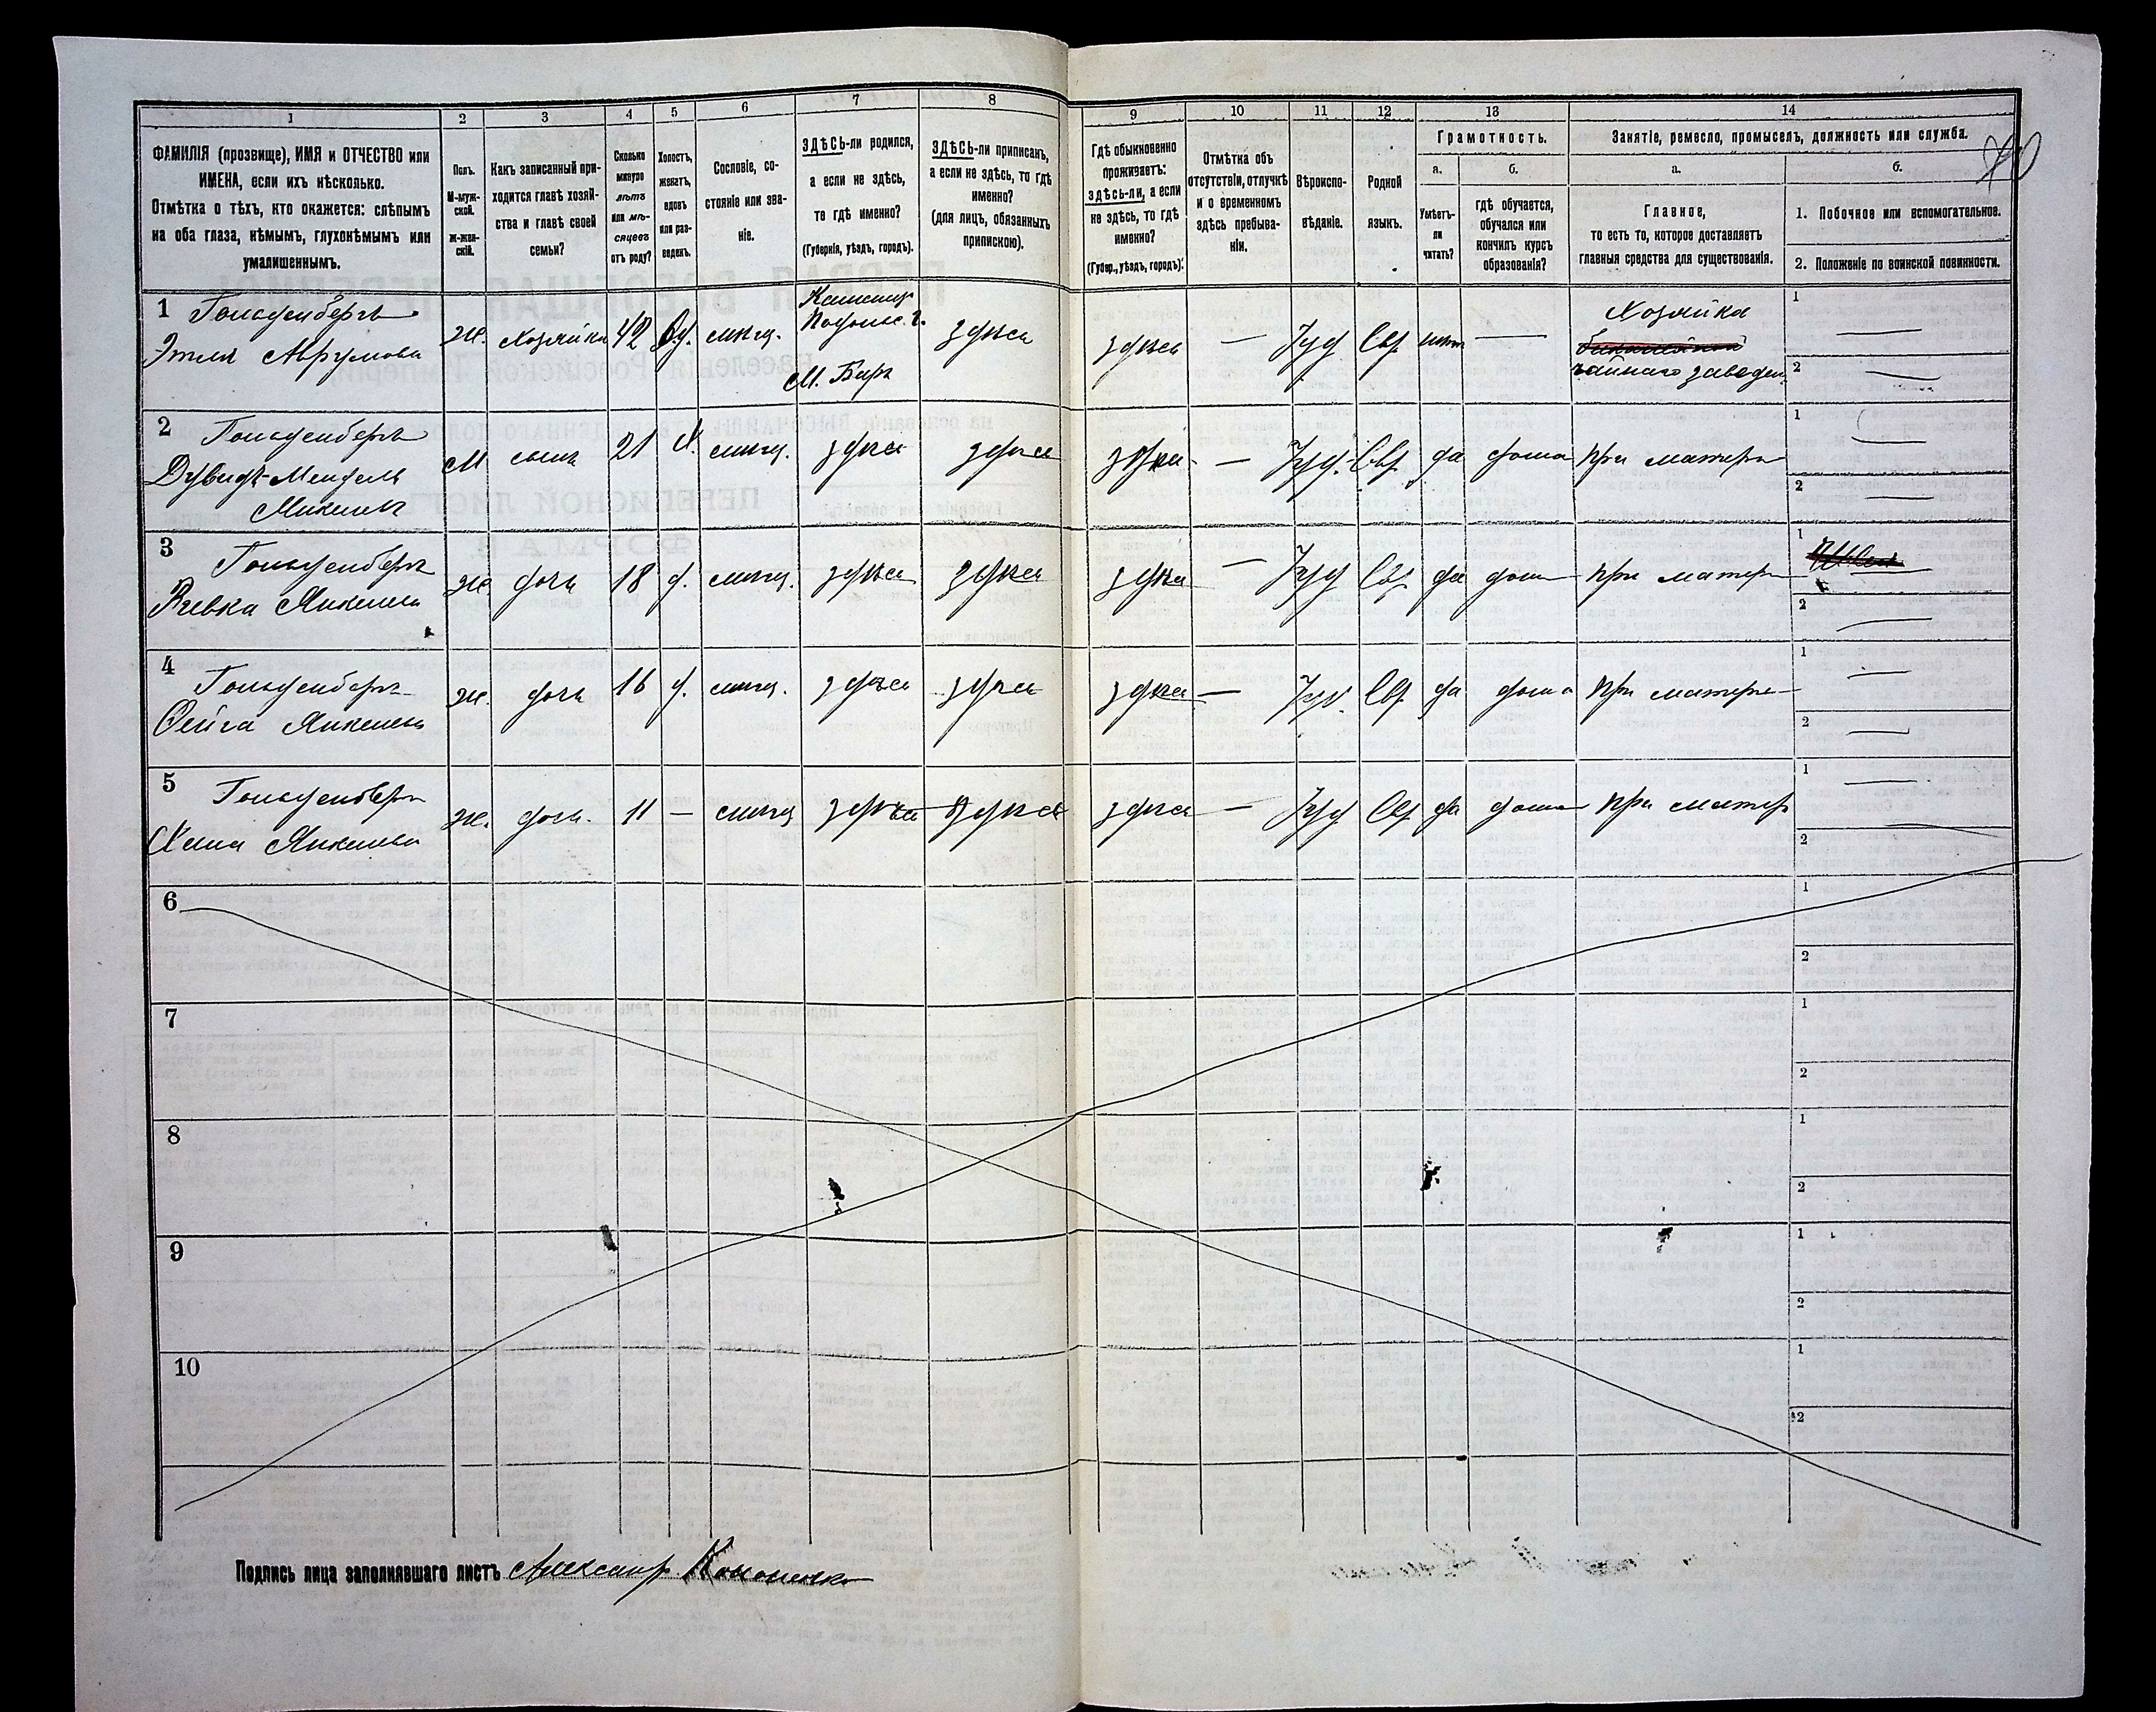 1
2
3
4
5
6
7
8
9
10
11
12
13
14
ФАМИЛІЯ (прозвище), ИМЯ и ОТЧЕСТВО или
ИМЕНА, если ихъ нѣсколько.
Отмѣтка о тѣхъ, кто окажется: слѣпымъ
на оба глаза, нѣмымъ, глухонѣмымъ или
умалишеннымъ.
Полъ.
М-муж-
ской.
Ж-жен-
скій.
Какъ записанный при-
ходится главѣ хозяй-
ства и главѣ своей
семьи?
Сколько
минуло
лѣтъ
или мѣ-
сяцевъ
отъ роду?
Холостъ,
женатъ,
вдовъ
или раз-
веденъ.
Сословіе, со-
стояніе или зва-
ніе.
ЗДѢСЬ-ли родился,
а если не здѣсь,
то гдѣ именно?
(Губернія, уѣздъ, городъ).
ЗДѢСЬ-ли приписанъ,
а если не здѣсь, то гдѣ
именно?
(для лицъ, обязанныхъ
припискою).
Гдѣ обыкновенно
проживаетъ:
здѣсь-ли, а если
не здѣсь, то гдѣ
именно?
(Губер., уѣздъ, городъ).
Отмѣтка объ
отсутствіи, отлучкѣ
и о временномъ
здѣсь пребыва-
ніи.
Вѣроиспо-
вѣданіе.
Родной
языкъ.
Грамотность.
а.
б.
Умѣетъ-
ли
читать?
гдѣ обучается,
обучался или
кончилъ курсъ
образованія?
Занятіе, ремесло, промыселъ, должность или служба.
а.
б.
Главное,
то есть то, которое доставляетъ
главныя средства для существованія.
1. Побочное или вспомогательное.
2. Положеніе по воинской повинности.
1 Гольденбергъ
Этля Аврумова
ж. хозяйка 42 вд. мѣщ.
Подольс. г.
М. Баръ
здѣсь здѣсь — Іуд Евр нѣтъ —
Хозяйка
чайнаго заведен.
1 —
2 —
2 Гольденбергъ
Дувидъ-Мендель
Янкелевъ
М сынъ 21 х. мѣщ. здѣсь здѣсь здѣсь — Іуд. Евр да дома при матери
1 —
2 —
3 Гольденбергъ
Ривка Янкелева
ж дочь 18 д. мѣщ. здѣсь здѣсь здѣсь — Іуд Евр да дома при матери
1
2 —
4 Гольденбергъ
Фейга Янкелева
ж. дочь 16 д. мѣщ. здѣсь здѣсь здѣсь — Іуд. Евр да дома при матери
1 —
2 —
5 Гольденбергъ
Хана Янкелева
ж. дочь. 11 — мѣщ здѣсь здѣсь здѣсь — Іуд Евр да дома при матер
1 —
2
6
1
2
7
1
2
8
1
2
9
1
2
10
1
2
Подпись лица заполнявшаго листъ Александр Кононенко